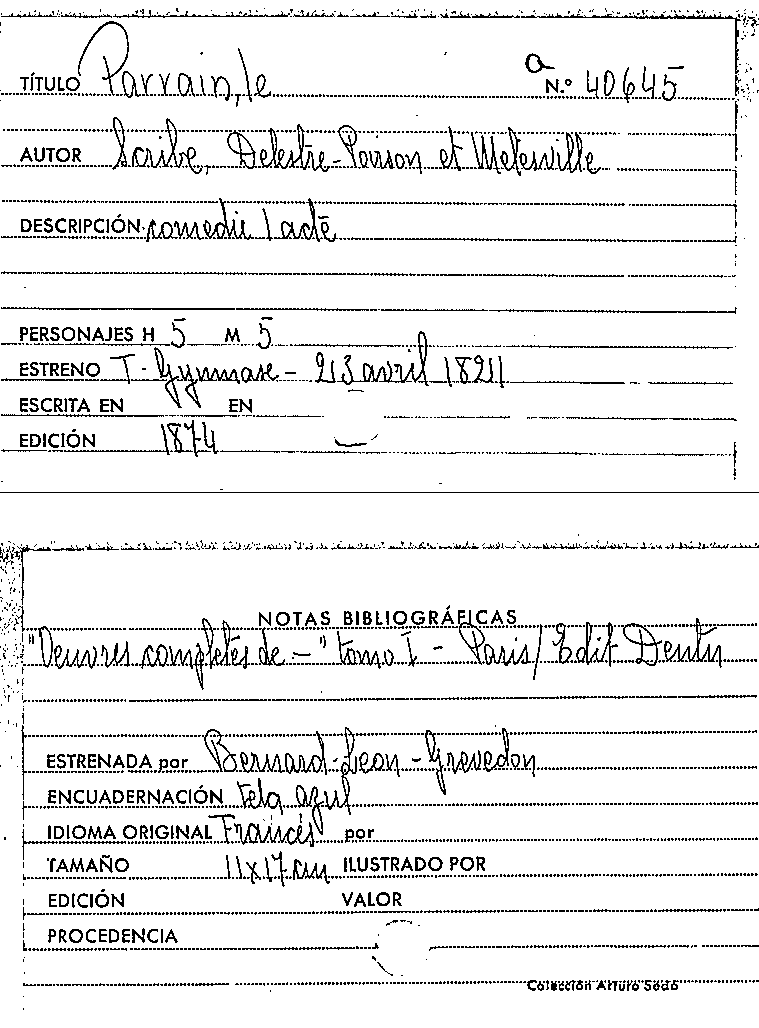 a
TÍTULO Parrain, le N.º 40645
AUTOR Scribe, Delestre-Poirson et Melesville
DESCRIPCIÓN comedie 1 acte
PERSONAJES H 5 M 5
ESTRENO T. Gymnase - 23 avril 1821
ESCRITA EN EN
EDICIÓN 1874
NOTAS BIBLIOGRÁFICAS
"Oeuvres completes de - " tomo I - Paris/ Edit Dentu
ESTRENADA por Bernard-Leon - Grevedon
ENCUADERNACIÓN tela azul
IDIOMA ORIGINAL Francés por
TAMAÑO 11x17 cm ILUSTRADO POR
EDICIÓN VALOR
PROCEDENCIA
Colección Arturo Sedó